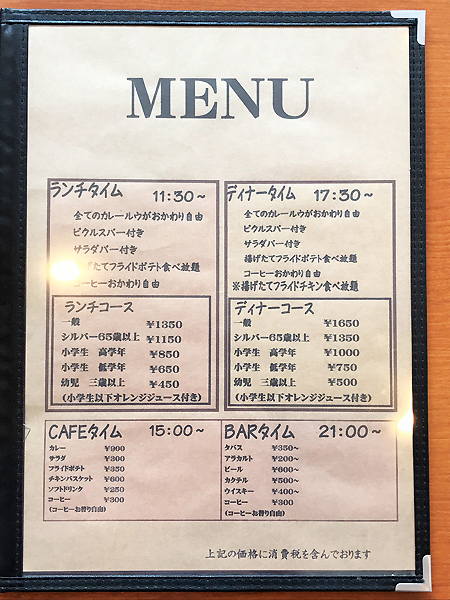 MENU
ランチタイム 11:30～
全てのカレールウがおかわり自由
ピクルスバー付き
サラダバー付き
げたてフライドポテト食べ放題
コーヒーおかわり自由
ランチコース
一般 ¥1350
シルバー65歳以上 ¥1150
小学生 高学年 ¥850
小学生 低学年 ¥650
幼児 三歳以上 ¥450
(小学生以下オレンジジュース付き)
ディナータイム 17:30～
全てのカレールウがおかわり自由
ピクルスバー付き
サラダバー付き
揚げたてフライドポテト食べ放題
コーヒーおかわり自由
※揚げたてフライドチキン食べ放題
ディナーコース
一般 ¥1650
シルバー65歳以上 ¥1350
小学生 高学年 ¥1000
小学生 低学年 ¥750
幼児 三歳以上 ¥500
(小学生以下オレンジジュース付き)
CAFEタイム 15:00～
カレー ¥900
サラダ ¥300
フライドポテト ¥350
チキンバスケット ¥600
ソフトドリンク ¥250
コーヒー ¥300
(コーヒーお替り自由)
BARタイム 21:00～
タパス ¥350～
アラカルト ¥200～
ビール ¥600～
カクテル ¥500～
ウイスキー ¥400～
コーヒー ¥300
(コーヒーお替り自由)
上記の価格に消費税を含んでおります